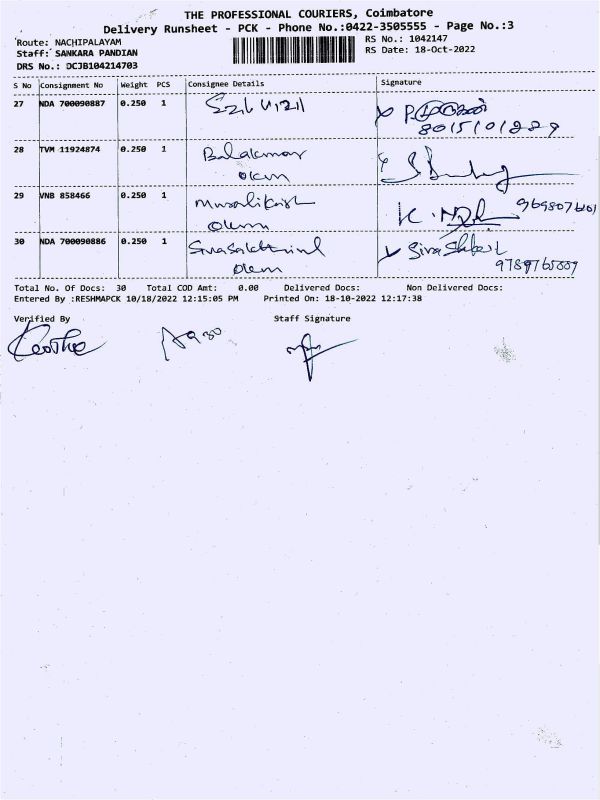 THE PROFESSIONAL COURIERS, Coimbatore
Delivery Runsheet - PCK - Phone No.:0422-3505555 - Page No.:3
Route: NACHIPALAYAM
RS No.: 1042147
Staff: SANKARA PANDIAN
RS Date: 18-Oct-2022
DRS No.: DCJB104214703
S No Consignment No Weight PCS Consignee Details Signature
27 NDA 700090887 0.250 1
8015101889
28 TVM 11924874 0.250 1 Balakumar
29 VNB 858466 0.250 1
9698076101
30 NDA 700090886 0.250 1
9789765889
Total No. Of Docs: 30 Total COD Amt: 0.00 Delivered Docs: Non Delivered Docs:
Entered By :RESHMAPCK 10/18/2022 12:15:05 PM Printed On: 18-10-2022 12:17:38
Verified By Staff Signature